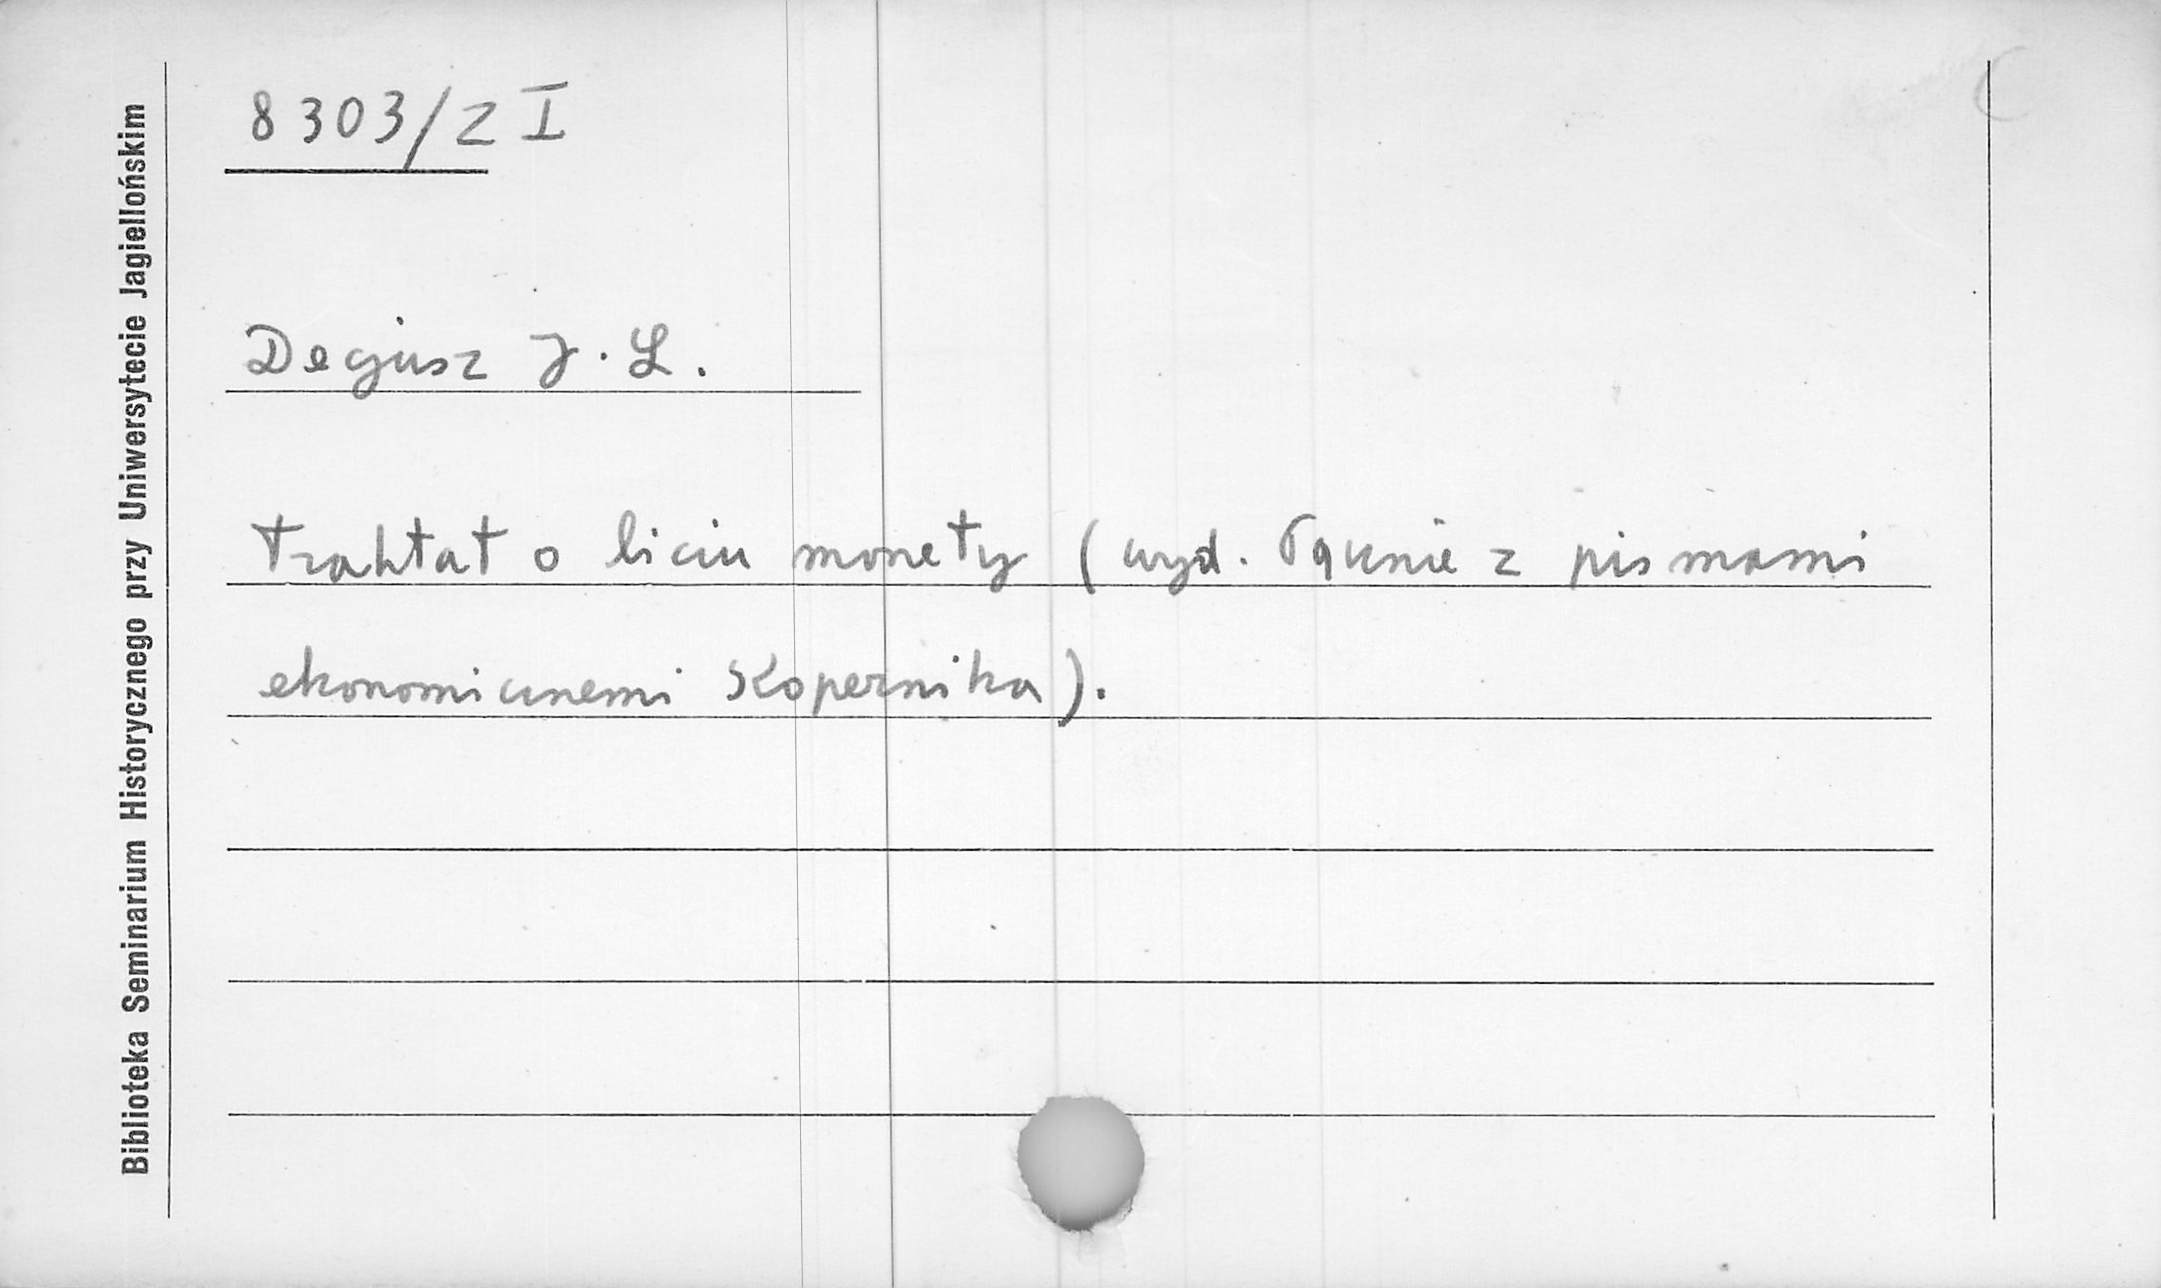 8303/Z I
Decjusz J. L.
Traktat o biciu monety (wyd. łącznie z pismami
ekonomicznemi Kopernika).
Biblioteka Seminarium Historycznego przy Uniwersytecie Jagiellońskim